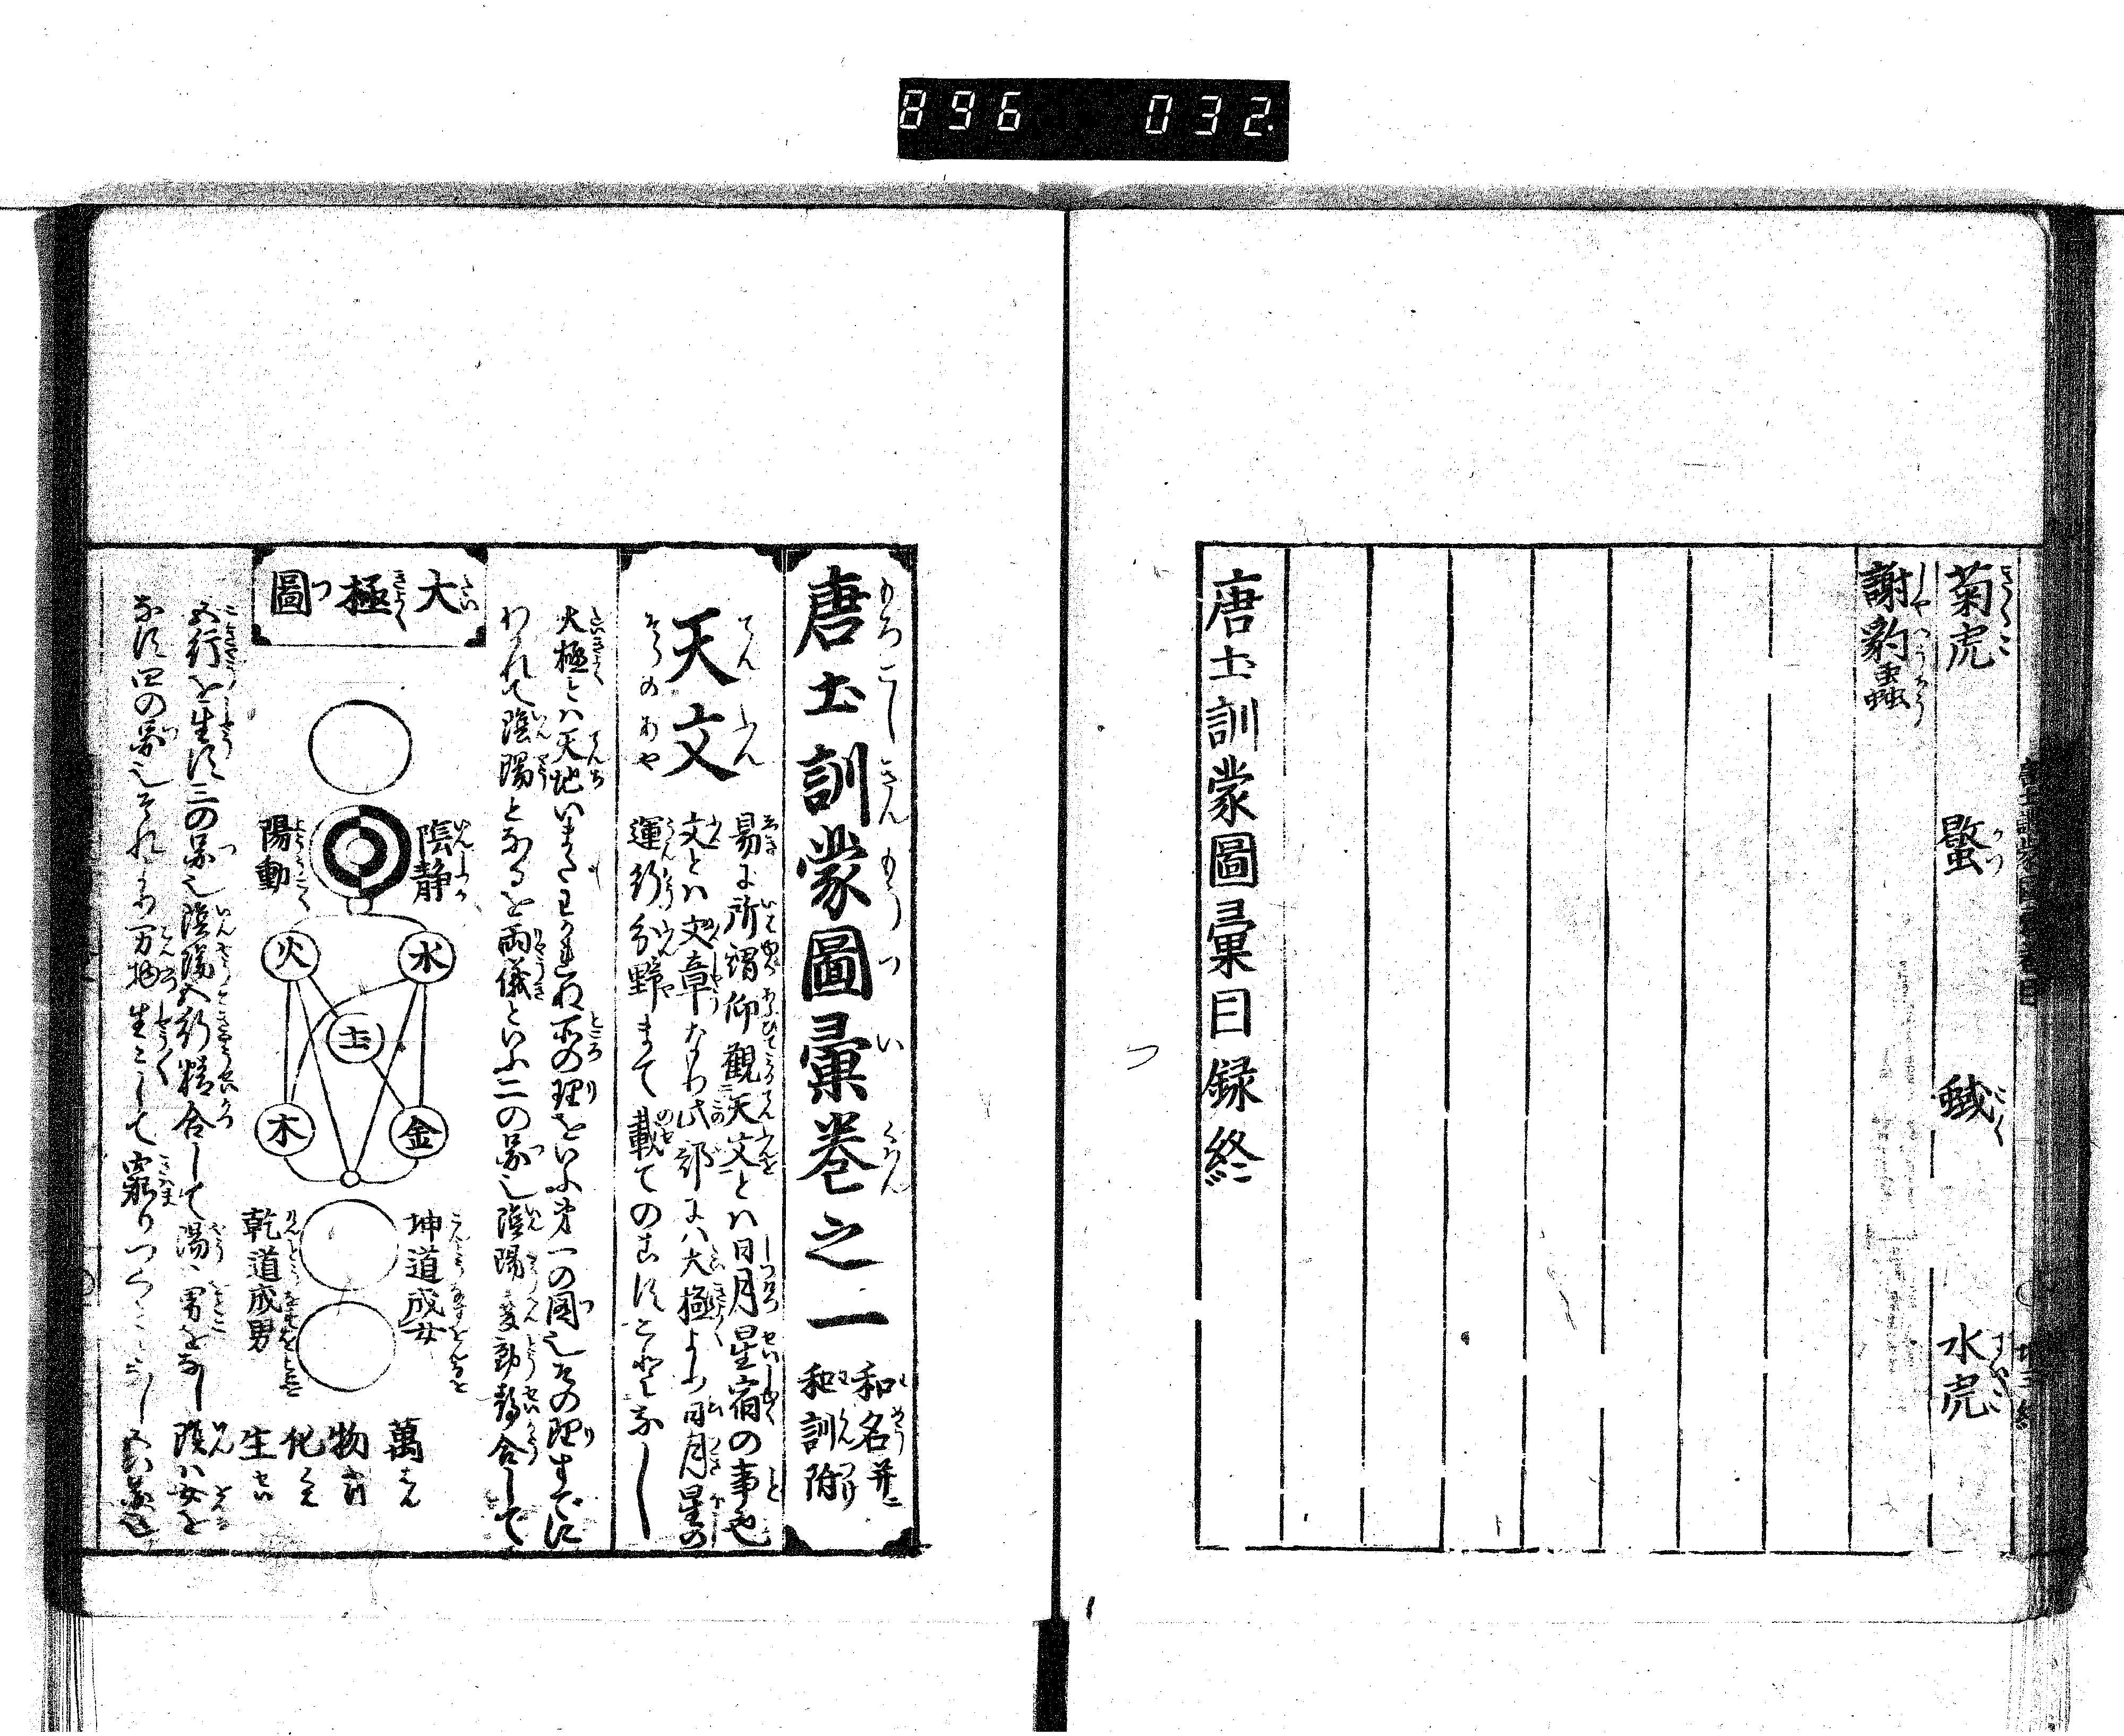 896 032
菊虎 螌 蜮 水虎
謝豹蟲
唐土訓蒙圖彙目録終
唐土訓蒙圖彙巻之一
和名并ニ
和訓附
天文
てんぶん
そらのあや
易に所謂仰観天文とハ日月星宿の事也
文とハ文章なり此部にハ大極より日月星の
運行分野まて載てのこすことなし
大極とハ天地いまだわかれぬ所の理をいふ第一の図也その理すでに
われて陰陽となるを両儀といふ二の図也陰陽変動静合して
大極圖
陰静
陽動
水
火
土
金
木
坤道成女
乾道成男
萬物化生
五行を生ず三の図也陰陽五行精合して陽ハ男をなし陰ハ女を
なす四の図也それより万物生々して窮りつくることなし五の図也